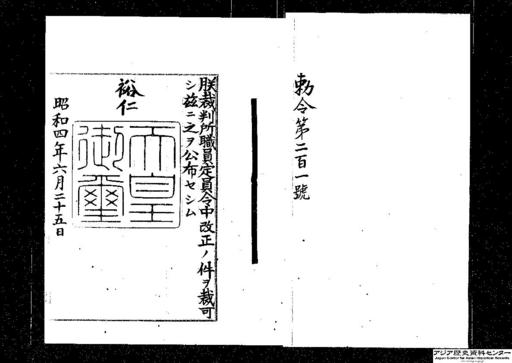 勅令第二百一號
朕裁判所職員定員令中改正ノ件ヲ裁可
シ茲ニ之ヲ公布セシム
裕仁
天皇
御璽
昭和四年六月二十五日
アジア歴史資料センター
Japan Center for Asian Historical Records